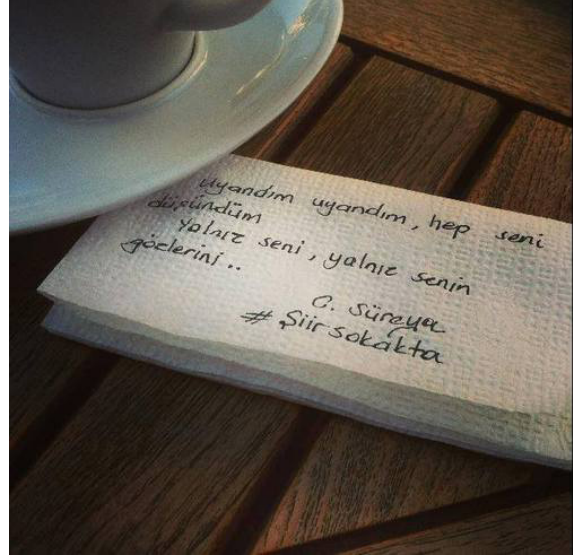 Uyandım uyandım, hep seni
düşündüm
Yalnız seni, yalnız senin
gözlerini..
C. Süreya
# Şiirsokakta